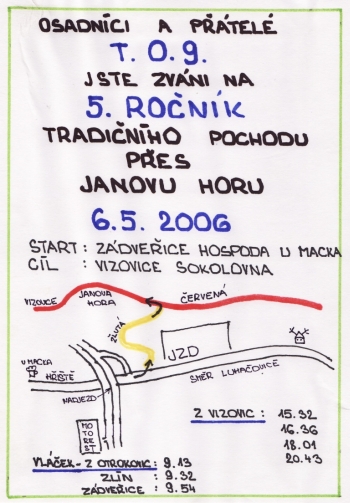 OSADNÍCI A PŘÁTELÉ
T. O. 9.
JSTE ZVÁNI NA
5. ROČNÍK
TRADIČNÍHO POCHODU
PŘES
JANOVU HORU
6.5. 2006
START : ZÁDVEŘICE HOSPODA U MACKA
CÍL : VIZOVICE SOKOLOVNA
VIZOVICE
JANOVA
HORA
ČERVENÁ
ŽLUTÁ
JZD
U MACKA
HŘIŠTĚ
SMĚR LUHAČOVICE
NADJEZD
MOTOREST
Z VIZOVIC : 15.32
16.36
18.01
20.43
VLÁČEK - Z OTROKOVIC : 9.13
ZLÍN : 9.32
ZÁDVEŘICE : 9.54